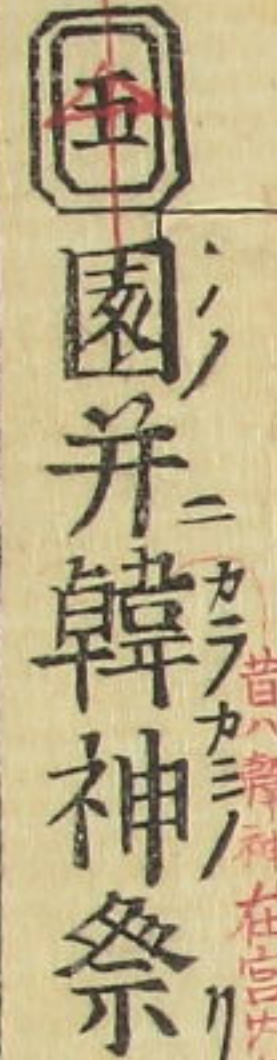 五
園并韓神祭
ソノ ニ カラカミノ リ
昔ハ韓神在宮内